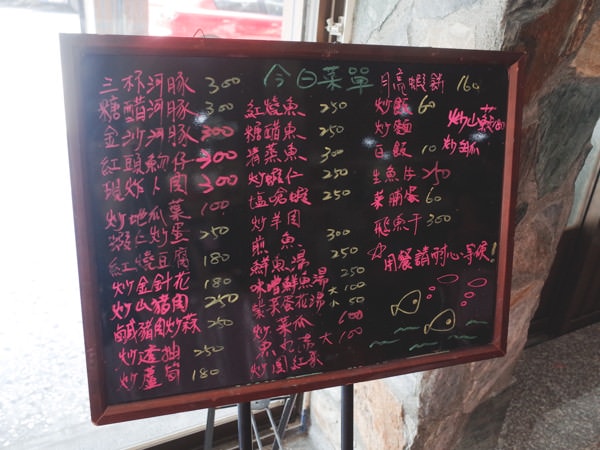 今日菜單
三杯河豚 300
糖醋河豚 300
金沙河豚 300
紅頭魩仔 300
現炸卜肉 300
炒地瓜葉 100
蝦仁炒蛋 250
紅燒豆腐 180
炒金針花 180
炒山豬肉 250
鹹豬肉炒蒜 250
炒透抽 250
炒蘆筍 180
紅燒魚 250
糖醋魚 250
清蒸魚 300
炒蝦仁 250
塩嗆蝦 250
炒羊肉
煎魚 300
鮮魚湯 250
味噌鮮魚湯 250
紫菜蛋花湯 大 50
炒菜瓜 100
魚丸湯 大 100
月亮蝦餅 160
炒飯 60
炒麵
白飯 10
生魚片 250
菜脯蛋 60
飛魚干 300
炒山蘇 100
用餐請耐心等候!